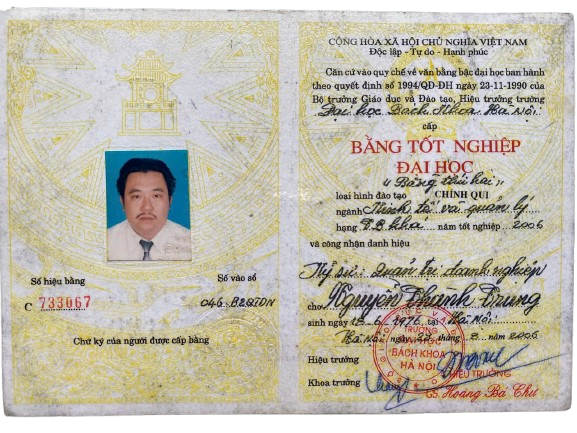 Số hiệu bằng
Số vào sổ
C 733067
046.B2QTDN
Chữ ký của người được cấp bằng
CỘNG HÒA XÃ HỘI CHỦ NGHĨA VIỆT NAM
Độc lập - Tự do - Hạnh phúc
Căn cứ vào quy chế về văn bằng bậc đại học ban hành
theo quyết định số 1994/QD-ĐH ngày 23-11-1990 của
Bộ trưởng Giáo dục và Đào tạo, Hiệu trưởng trường
Đại học Bách Khoa Hà Nội
cấp
BẰNG TỐT NGHIỆP
ĐẠI HỌC
"Bằng thứ hai"
loại hình đào tạo CHÍNH QUI
ngành Kinh tế và quản lý
hạng T.B khá năm tốt nghiệp 2006
và công nhận danh hiệu
Kỹ sư: Quản trị doanh nghiệp
cho Nguyễn Thành Trung
sinh ngày 18.6.1976 tại Hà Nội
Hà Nội ngày 20 tháng 8 năm 2006
Hiệu trưởng
TRƯỜNG
BÁCH KHOA
HÀ NỘI
HIỆU TRƯỞNG
Khoa trưởng
GS. Hoàng Bá Chư